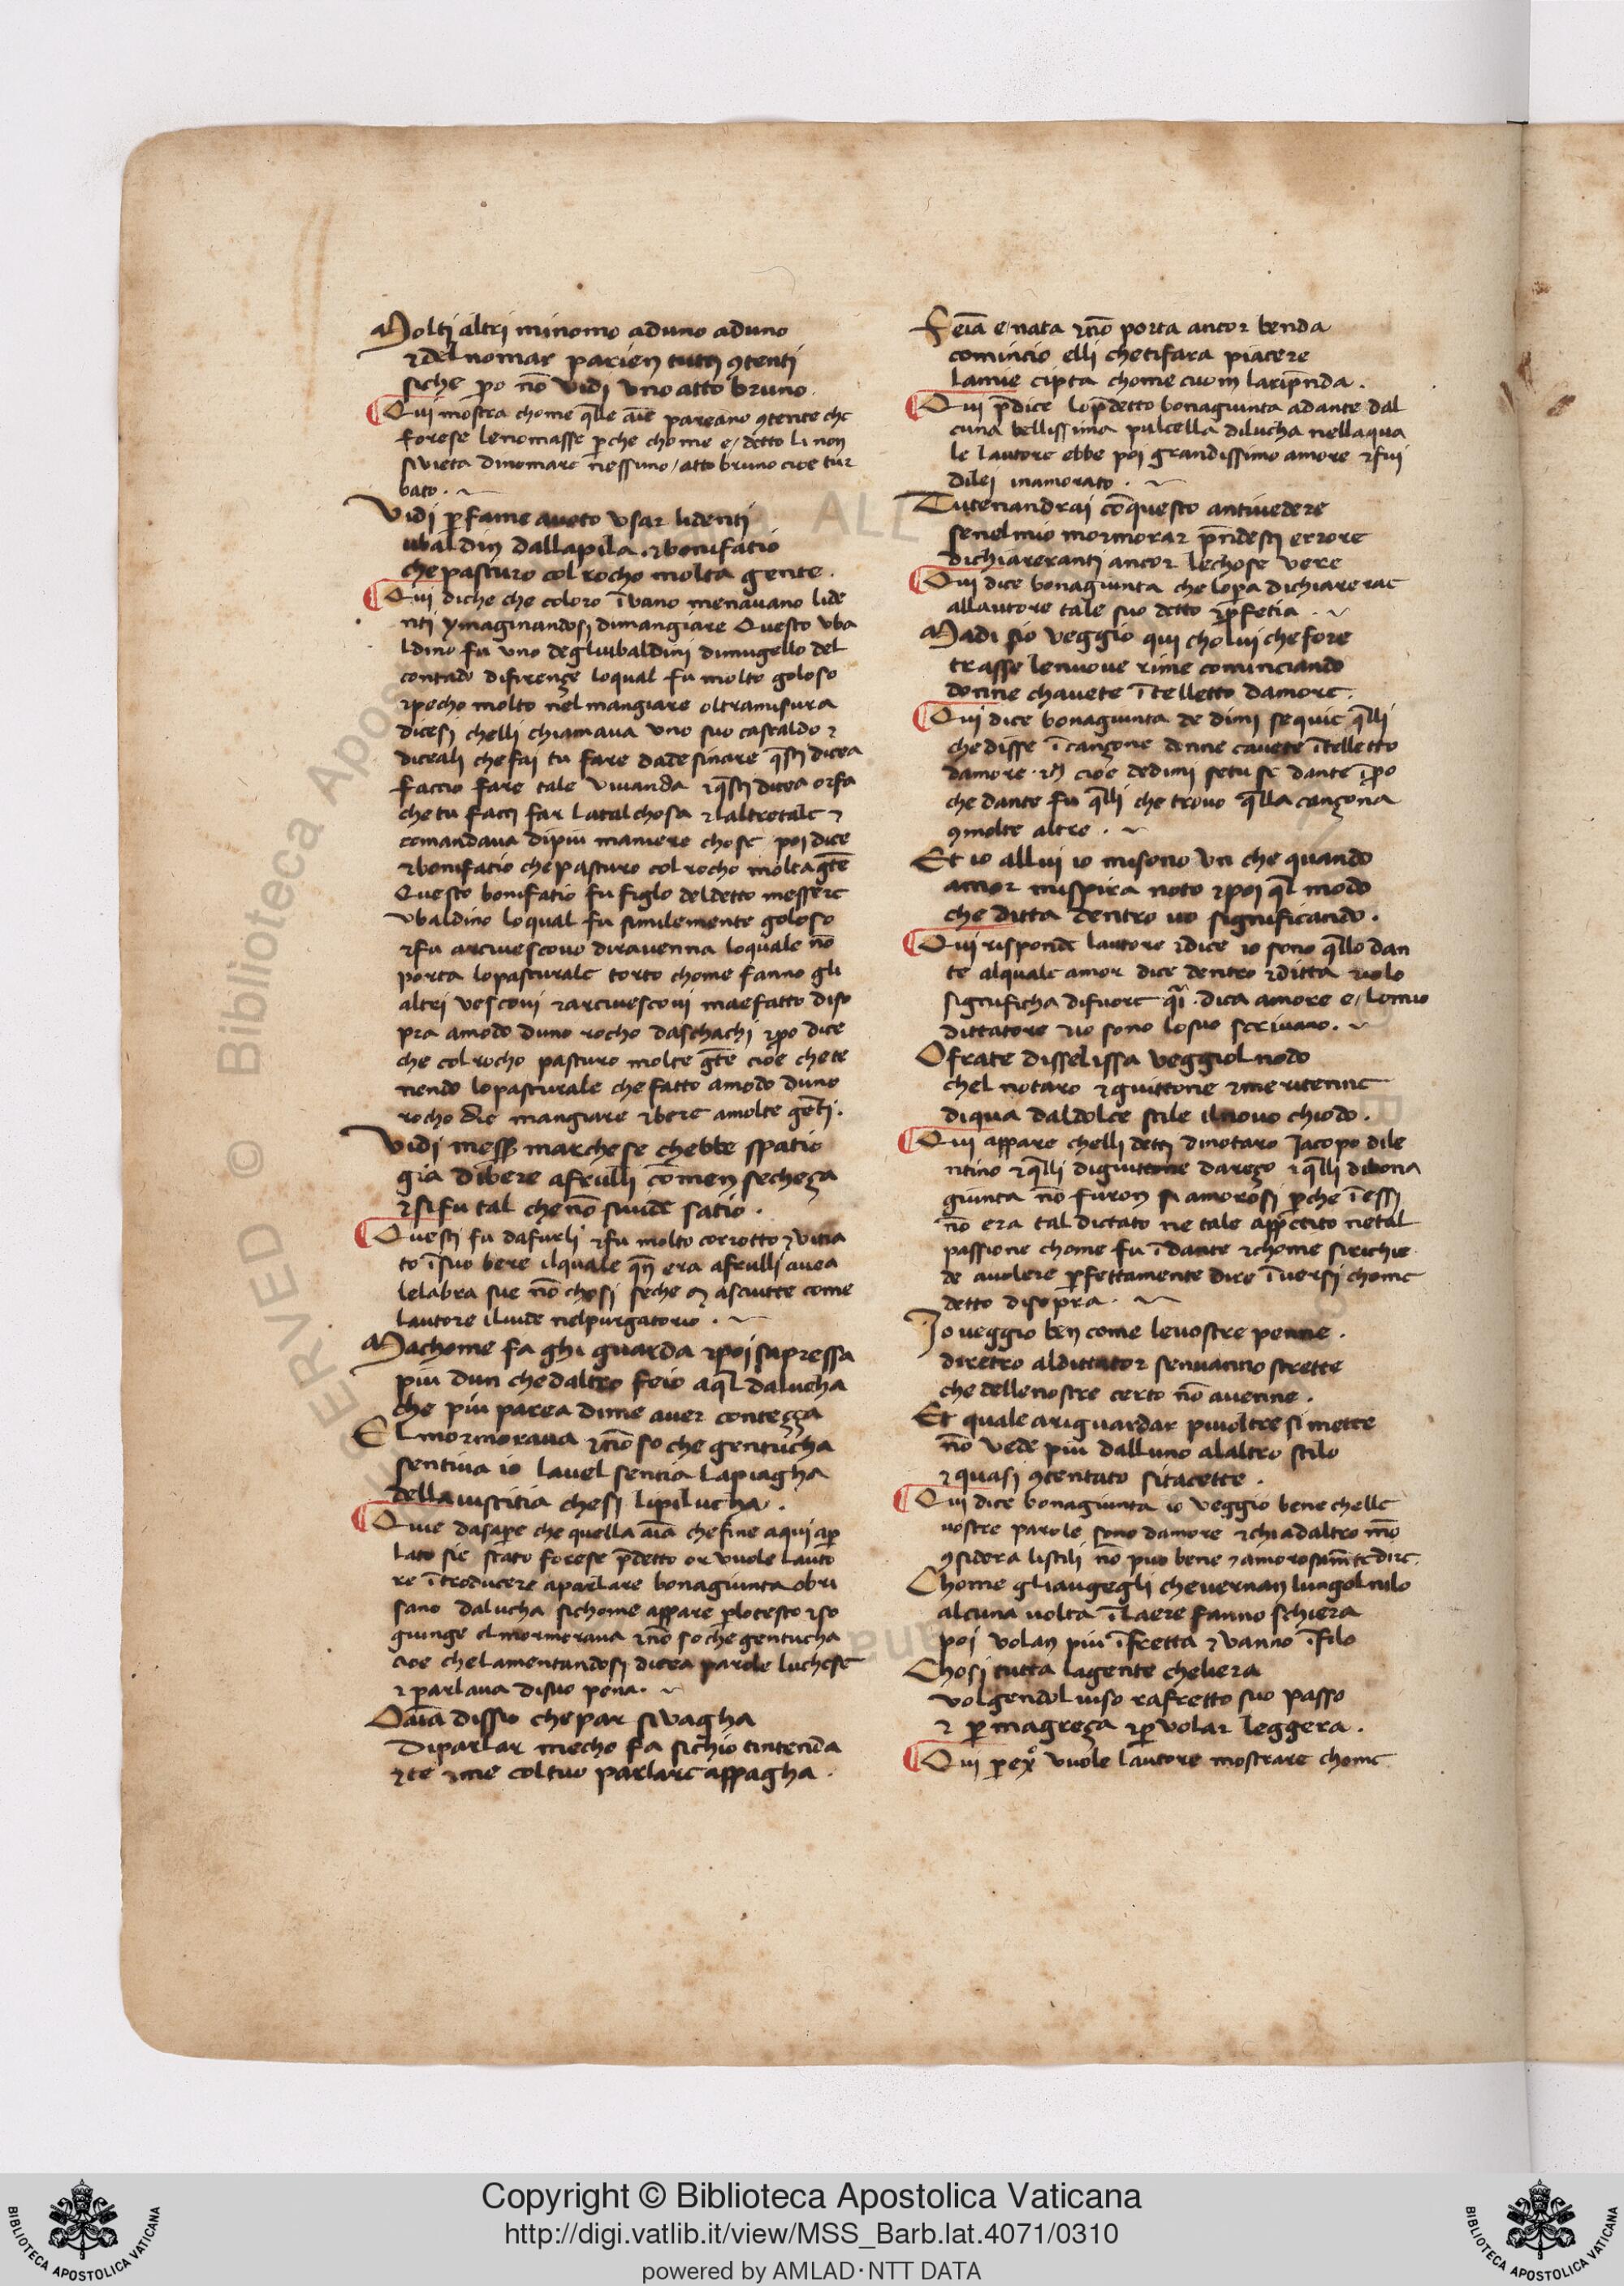 Molti altri minomo aduno aduno
⁊del nomar parien tuttj ꝯtenti
siche po nō vidj vno atto bruno.
Qui mostra chome q̄lle aīe pareano ꝯtente che
forese lenomasse ꝑche chome e/ detto li non
sivieta dinomare nessuno/atto bruno cioe tur
bato.
Vidj ꝑ fame avoto vsar lidenti
ubaldin dallapila.⁊bonifatio
che pasturo col rocho molta gente.
Qui diche che coloro ī vano menavano lide
nti ymaginandosj dimangiare Questo vba
ldino fu uno degliubaldini dimugello del
contado difirençe loqual fu molto goloso
⁊pecho molto nel mangiare oltramisura
dicesj chelli chiamava uno suo castaldo ⁊
diceali che faj tu fare dadesinare q̄stj dicea
faccio fare tale vivanda ⁊q̄stj dicea or fa
che tu faccj far latal chosa ⁊laltretale ⁊
comandava dipiu maniere chose poi dice
⁊bonifatio che pasturo col rocho molta gēte
Questo bonifatio fu figlo deldetto messere
vbaldino loqual fu similemente goloso
⁊fu arcivescovo diravenna loquale nō
porta lopasturale torto chome fanno gli
altri vescovi ⁊arcivescovi mae fatto diso
pra amodo duno rocho daschachi ⁊po dice
che col rocho pasturo molte gēte cioe che te
nendo lopasturale che fatto amodo duno
rocho die mangiare ⁊bere amolte gētj.
Vidj mess̄ marchese chebbe spatio
gia dibere afrulli cōmen secheça
⁊si fu tal che nō sivide satio.
Questj fu dafurli ⁊fu molto corrotto ⁊vitia
to ī suo bere ilquale q̄n era afrulli avea
lelabra sue nō chosj seche ⁊ asciutte come
lautore iluide nelpurgatorio.
Machome fa ghi guarda ⁊poi sapressa
piu dun che daltro feio aq̄l dalucha
che piu parea dime aver conteçça
El mormorava ⁊nō so che gentucha
sentiva io lauel sentia lapiagha
della iustitia chesj lipilucha.
Quie dasaꝑe che quella aīa che fine aqui aꝑ
lato sie stato forese p̄detto or vuole lauto
re ītroducere aparlare bonagiunta obri
sano dalucha sichome appare ꝑlotesto ⁊so
giunge el mormorava ⁊nō so che gentucha
cioe chelamentandosj dicea parole luchese
⁊ parlava disuo pena.
O aīa dissio che par sivagha
diparlar mecho fa sichio tintenda
⁊te ⁊me coltuo parlare appagha.
Feīa e/ nata ⁊nō porta ancor benda
comincio elli chetifara piacere
lamie cipta chome cuom laripn̄da.
Qui p̄dice lop̄detto bonagiunta adante dal
cuna bellissima pulcella dilucha nellaqua
le lautore ebbe poj grandissimo amore ⁊fuj
dilej inamorato.
Tutenandrai cō questo antivedere
senelmio mormorar p̄ndestj errore
dichiareranti ancor lechose vere
Qui dice bonagiunta che lopa dichiarerae
allautore tale suo detto ⁊p̄fetia.
Madi sio veggio qui cholui che fore
trasse lenuove rime cominciando
donne chavete ītelletto damore.
Qui dice bonagiunta de dimj sequie q̄lli
che disse ī cançone donne cavete ītelletto
damore. cioe dedimj setu se dante īpo
che dante fu q̄lli che trovo q̄lla cançona
ꝯmolte altre.
Et io allui io misono vn che quando
amor mispira noto ⁊poi q̄l modo
che ditta dentro vo significando.
Qui risponde lautore ⁊dice io sono q̄llo dan
te alquale amor dice dentro ⁊ditta ⁊volo
significha difuore q̄i. dica amore e/ lomio
dittatore ⁊io sono losuo scrivano.
O frate disselissa veggiol nodo
chel notaro ⁊guittone ⁊me ritenne
diqua daldolce stile ilnovo chiodo.
Qui appare chelli dettj dinotaro Jacopo dile
ntino ⁊q̄lli diguittone dareço ⁊q̄lli dibona
giunta nō furon si amorosj ꝑche ī essj
nō era tal dictato ne tale appetito netal
passione chome fu ī dante ⁊chome sirichie
de avolere ꝑfettamente dire ī versj chome
detto disopra.
Jo veggio ben come levostre penne.
diretro aldittator senvanno strette
che dellenostre certo nō avenne.
Et quale ariguardar piuoltre si mette
nō vede piu dalluno alaltro stilo
⁊quasj ꝯtentato sitacette.
Qui dice bonagiunta io veggio bene chelle
vostre parole sono damore ⁊chi adaltro mō
ꝯsidera listili nō puo bene ⁊amorosam̄te dire.
Chome gliaugegli chevernan lungol nilo
alcuna volta ī laere fanno schiera
poj volan piu ī fretta ⁊vanno ī filo
Chosi tutta lagente cheliera
volgendol viso rafretto suo passo
⁊ ꝑ magreça ⁊ꝑ volar leggera.
Qui ꝑ exo vuole lautore mostrare chome
Copyright © Biblioteca Apostolica Vaticana
http://digi.vatlib.it/view/MSS_Barb.lat.4071/0310
powered by AMLAD·NTT DATA
BIBLIOTECA APOSTOLICA VATICANA
BIBLIOTECA APOSTOLICA VATICANA